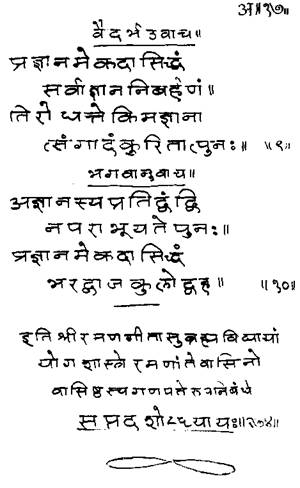 अ॥१७॥
वैदर्भ उवाच॥
प्रज्ञानमेकदा सिद्धं
सर्वाज्ञाननिबर्हणं॥
तिरोधत्ते किमज्ञाना
त्संगादंकुरितात्पुनः॥ ॥९॥
भगवानुवाच॥
अज्ञानस्यप्रतिद्वंद्वि
नपराभूयतेपुनः॥
प्रज्ञानमेकदासिद्धं
भरद्वाजकुलोद्वह॥ ॥१०॥
इतिश्रीरमणगीतासुब्रह्मविद्यायां
योगशास्त्रेरमणांतेवासिनो
वासिष्ठस्यगणपतेरुपनिबंधे
सप्तदशोऽध्यायः॥२७४॥